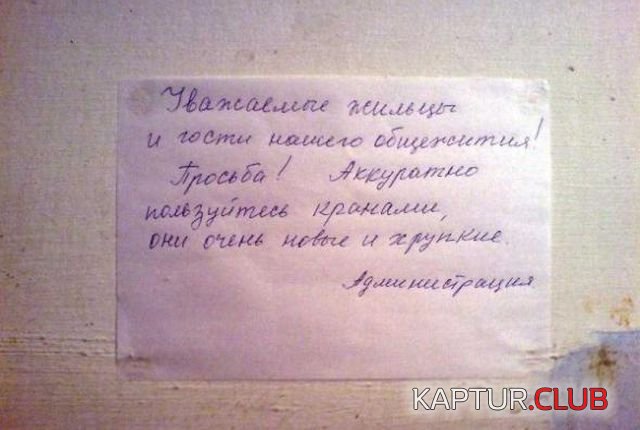 Уважаемые жильцы
и гости нашего общежития!
Просьба! Аккуратно
пользуйтесь кранами,
они очень новые и хрупкие.
Администрация
KAPTUR.CLUB